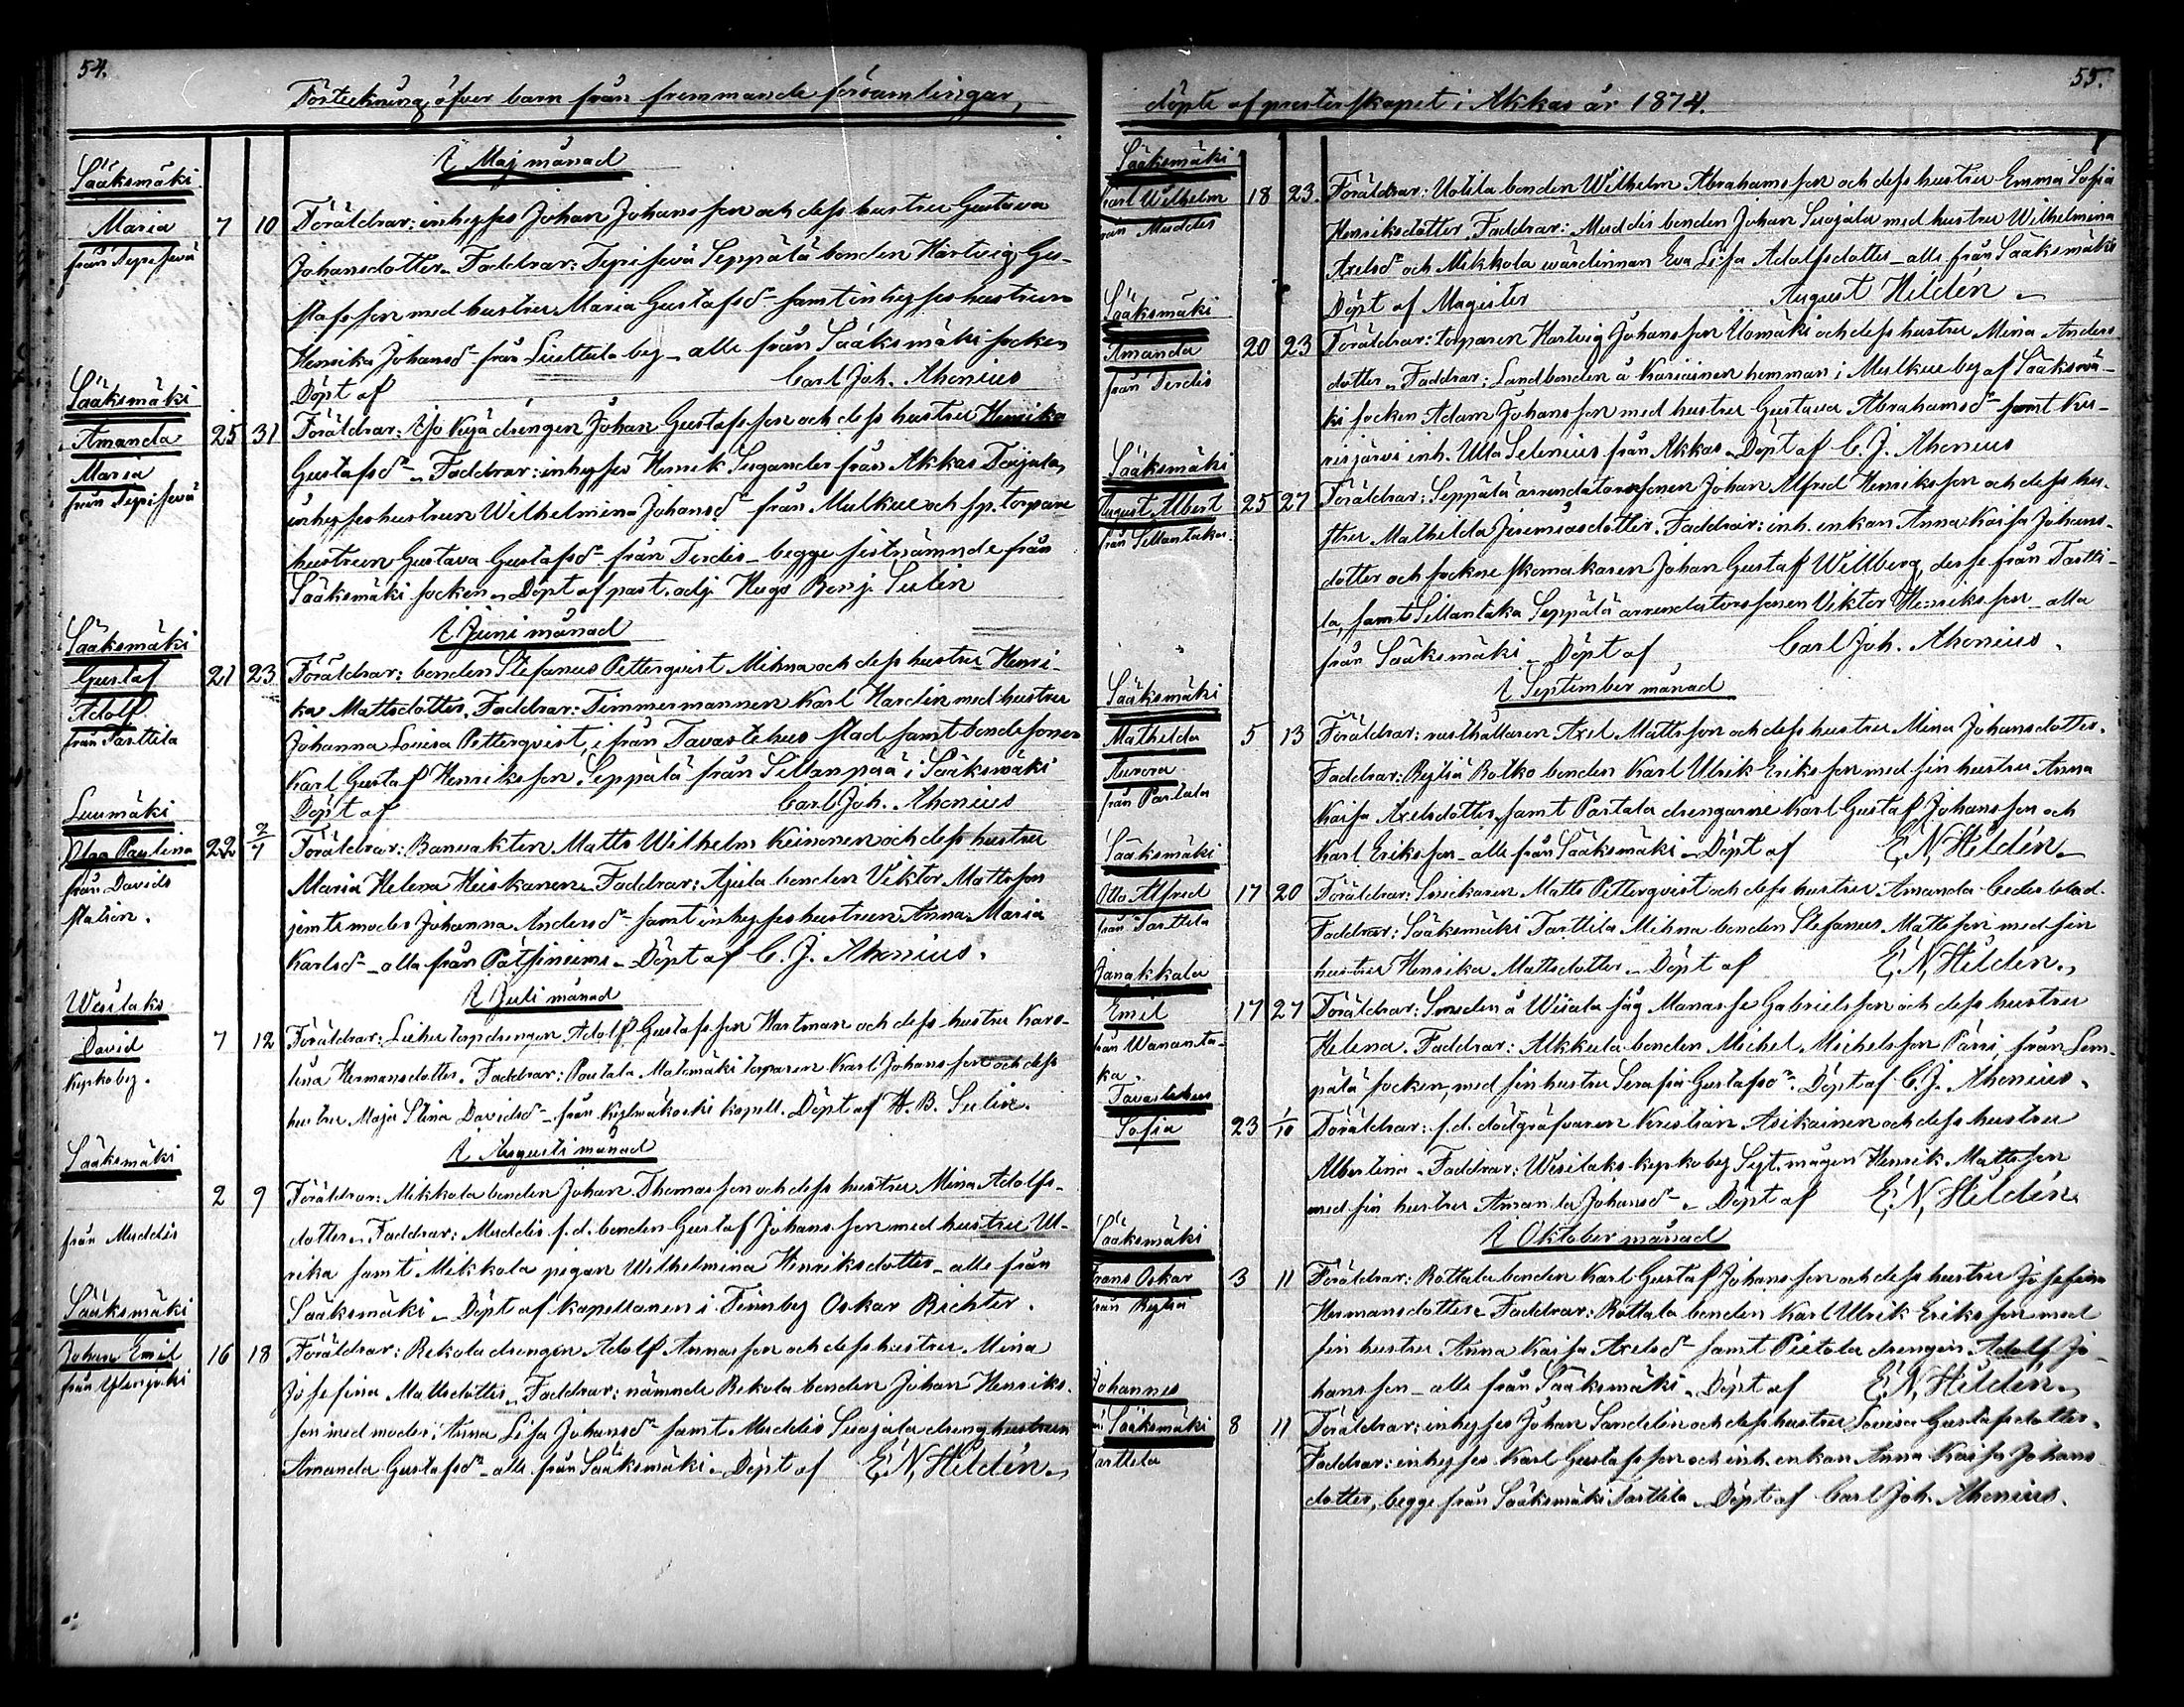 54.
Förteckning öfver barn från fremmande församlingar,
I Maj månad
Sääksmäki
Maria 7 10 Föräldrar: inhyses Johan Johansson och dess hustru Gustava
från Tepisevä Johansdotter. Faddrar: Tepisevä Seppälä bonden Hartvig Gus-
tafsson med hustru Maria Gustafsd. samt inhyses hustrun
Henrika Johansd. från Liuttula by - alla från Sääksmäki socken
Döpt af Carl Joh. Ahonius
Sääksmäki
Amanda 25 31 Föräldrar: Iso drengen Johan Gustafsson och dess hustru Henrika
Maria Gustafsd. Faddrar: inhyses Henrik Sugander från Akkas Toijala,
från Tepisevä inhyseshustrun Wilhelmina Johansd. från Mulkue och sp. torpare
hustrun Gustava Gustafsd. från Terdis - begge sistnämnde från
Sääksmäki socken. Döpt af past. adj. Hugo Benj. Sulin
I Juni månad
Sääksmäki
Gustaf 21 23 Föräldrar: bonden Stefanus Petterqvist Mihna och dess hustru Henri-
Adolf ka Mattsdotter. Faddrar: Timmermannen Karl Hardin med hustru
från Tarttila Johanna Lovisa Petterqvist, ifrån Tavastehus stad samt bondesonen
Karl Gustaf Henriksson Seppälä från Sillanpää i Sääksmäki
Döpt af Carl Joh. Ahonius
Luumäki
Olga Paulina 22 2/7 Föräldrar: Banvakten Matts Wilhelm Keinonen och dess hustru
från Davids Maria Helena Heiskanen. Faddrar: Ajula bonden Viktor Mattsson
station. jemte moder Johanna Andersd. samt inhyseshustrun Anna Maria
Karlsd. - alla från Pätsiniemi. Döpt af C. J. Ahonius.
I Juli månad
Wesilaks
David 7 12 Föräldrar: torpdrengen Adolf Gustafsson Hartman och dess hustru Karo-
Kyrkoby. lina Hermansdotter. Faddrar: Pautala Matomäki torparen Karl Johansson och dess
hustru Maja Stina Davidsd. från Kylmäkoski kapell. Döpt af H. B. Sulin.
I Augusti månad
Sääksmäki
2 9 Föräldrar: Mikkola bonden Johan Thomasson och dess hustru Mina Adolfs-
från Muddis dotter. Faddrar: Muddis f.d. bonden Gustaf Johansson med hustru Ul-
rika samt Mikkola pigan Wilhelmina Henriksdotter - alla från
Sääksmäki. Döpt af kapellanen i Finnby Oskar Richter.
Sääksmäki
Johan Emil 16 18 Föräldrar: Rekola drengen Adolf Annasson och dess hustru Mina
från Josefina Mattsdotter. Faddrar: nämnde Rekola bonden Johan Henriks-
son med moder, Anna Lisa Johansd. samt Muddis Suojala drenghustrun
Amanda Gustafsd. - alla från Sääksmäki. Döpt af E. N. Hildén.
55.
döpte af presterskapet i Akkas år 1874.
Sääksmäki
Karl Wilhelm 18 23 Föräldrar: Uotila bonden Wilhelm Abrahamsson och dess hustru Emma Sofia
från Muddis Henriksdotter. Faddrar: Muddis bonden Johan Suojala med hustru Wilhelmina
Axelsd. och Mikkola wärdinnan Eva Lisa Adolfsdotter - alla från Sääksmäki
Döpt af Magister August Hildén
Sääksmäki
Amanda 20 23 Föräldrar: torparen Hartvig Johansson Uomäki och dess hustru Mina Anders
från Terdis dotter. Faddrar: Landbonden å Kariainen hemman i Mulkue by af Sääksmä-
ki socken Adam Johansson med hustru Gustava Abrahamsd. samt Ku-
risjärvi inh. Ulla Selenius från Akkas. Döpt af C. J. Ahonius
Sääksmäki
August Albert 25 27 Föräldrar: Seppälä arrendatorssonen Johan Alfred Henriksson och dess hu-
från Sillantaka stru Mathilda Jeremiasdotter. Faddrar: inh. enkan Anna Kaisa Johans-
dotter och sockne skomakaren Johan Gustaf Willberg, desse från Tartti-
la, samt Sillantaka Seppälä arrendatorssonen Viktor Henriksson - alla
från Sääksmäki. Döpt af Carl Joh. Ahonius.
I September månad
Sääksmäki
Mathilda 5 13 Föräldrar: rusthållaren Axel Mattsson och dess hustru Mina Johansdotter.
Aurora Faddrar: Rotko bonden Karl Ulrik Eriksson med sin hustru Anna
från Partala Kaisa Axelsdotter, samt Partala drengarne Karl Gustaf Johansson och
Karl Eriksson - alla från Sääksmäki. Döpt af E. N. Hildén.
Sääksmäki
Otto Alfred 17 20 Föräldrar: Snickaren Matts Petterqvist och dess hustru Amanda Cederblad.
från Tarttila Faddrar: Sääksmäki Tarttila Mihna bonden Stefanus Mattsson med sin
hustru Henrika Mattsdotter. Döpt af E. N. Hildén.
Janakkala
Emil 17 27 Föräldrar: Smeden å Wiiala såg Manasse Gabrielsson och dess hustru
från Wananta- Helena. Faddrar: Alkkula bonden Michel Michelsson Pärri, från Lem-
ka. pälä socken, med sin hustru Serafia Gustafsd. Döpt af C. J. Ahonius.
Tavastehus
Sofia 23 1/10 Föräldrar: f.d. dödgräfvaren Kristian Asikainen och dess hustru
Albertina. Faddrar: Wesilaks kyrkoby Sept. mågen Henrik Mattsson
med sin hustru Amanda Johansd. Döpt af E. N. Hildén
I Oktober månad
Sääksmäki
Frans Oskar 3 11 Föräldrar: Rottala bonden Karl Gustaf Johansson och dess hustru Josefina
från Hermansdotter. Faddrar: Rottala bonden Karl Ulrik Eriksson med
sin hustru Anna Kaisa Axelsd. samt Pietola drengen Adolf Jo-
hansson - alla från Sääksmäki. Döpt af E. N. Hildén.
Johannes
Sääksmäki 8 11 Föräldrar: inhyses Johan Sandelin och dess hustru Lovisa Gustafsdotter.
Tarttila Faddrar: inhyses Karl Gustafsson och inh. enkan Anna Kaisa Johans
dotter, begge från Sääksmäki Tarttila. Döpt af Carl Joh. Ahonius.